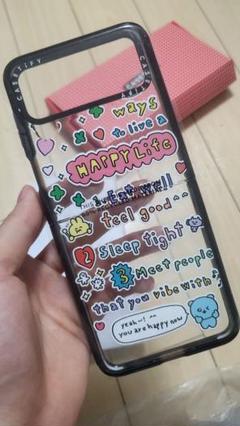 CASETiFY
CASETiFY
3 ways
to live a
HAPPY LiFe
1 Eat well
feel good ^^
2 Sleep tight
3 Meet people
that you vibe with
yeah~! ^^
you are happy now